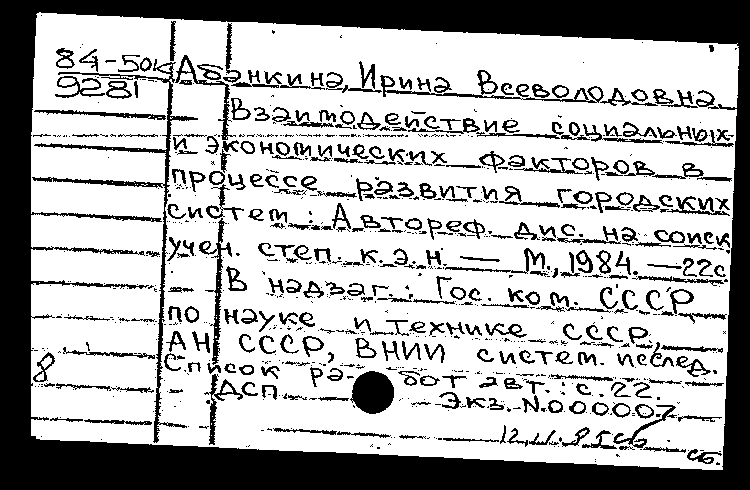 84-50к Абанкина, Ирина Всеволодовна.
9281
Взаимодействие социальных
и экономических факторов в
процессе развития городских
систем : Автореф. дис. на соиск
учен. степ. к.э.н. — М., 1984. — 22 с
В надзаг. : Гос. ком. СССР
по науке и технике СССР,
АН СССР, ВНИИ систем. исслед.
8 Список работ авт.: с. 22.
- ДСП Экз. N.000007.
сб.